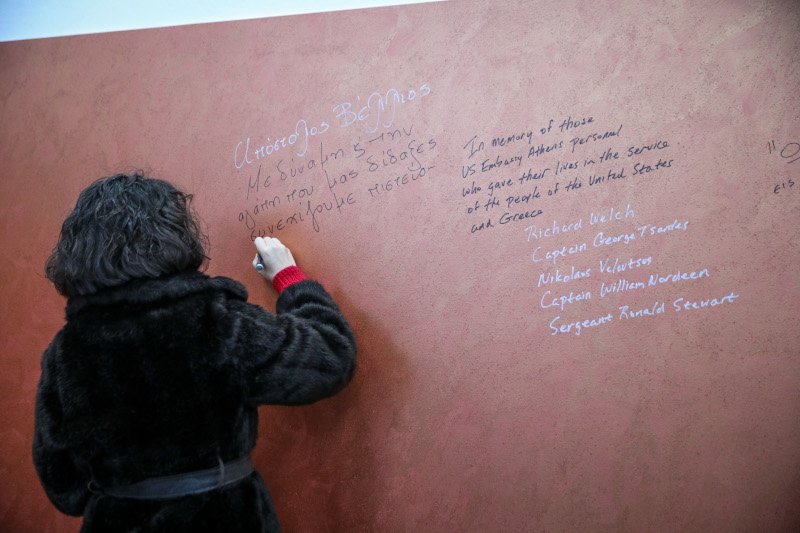 Απόστολος Βέλλιος
Με δύναμη & την
αγάπη που μας δίδαξες
συνεχίζουμε πιστεύο-
In memory of those
US Embassy Athens personnel
who gave their lives in the service
of the people of the United States
and Greece
Richard Welch
Captain George Tsantes
Nikolaos Veloutsos
Captain William Nordeen
Sergeant Ronald Stewart